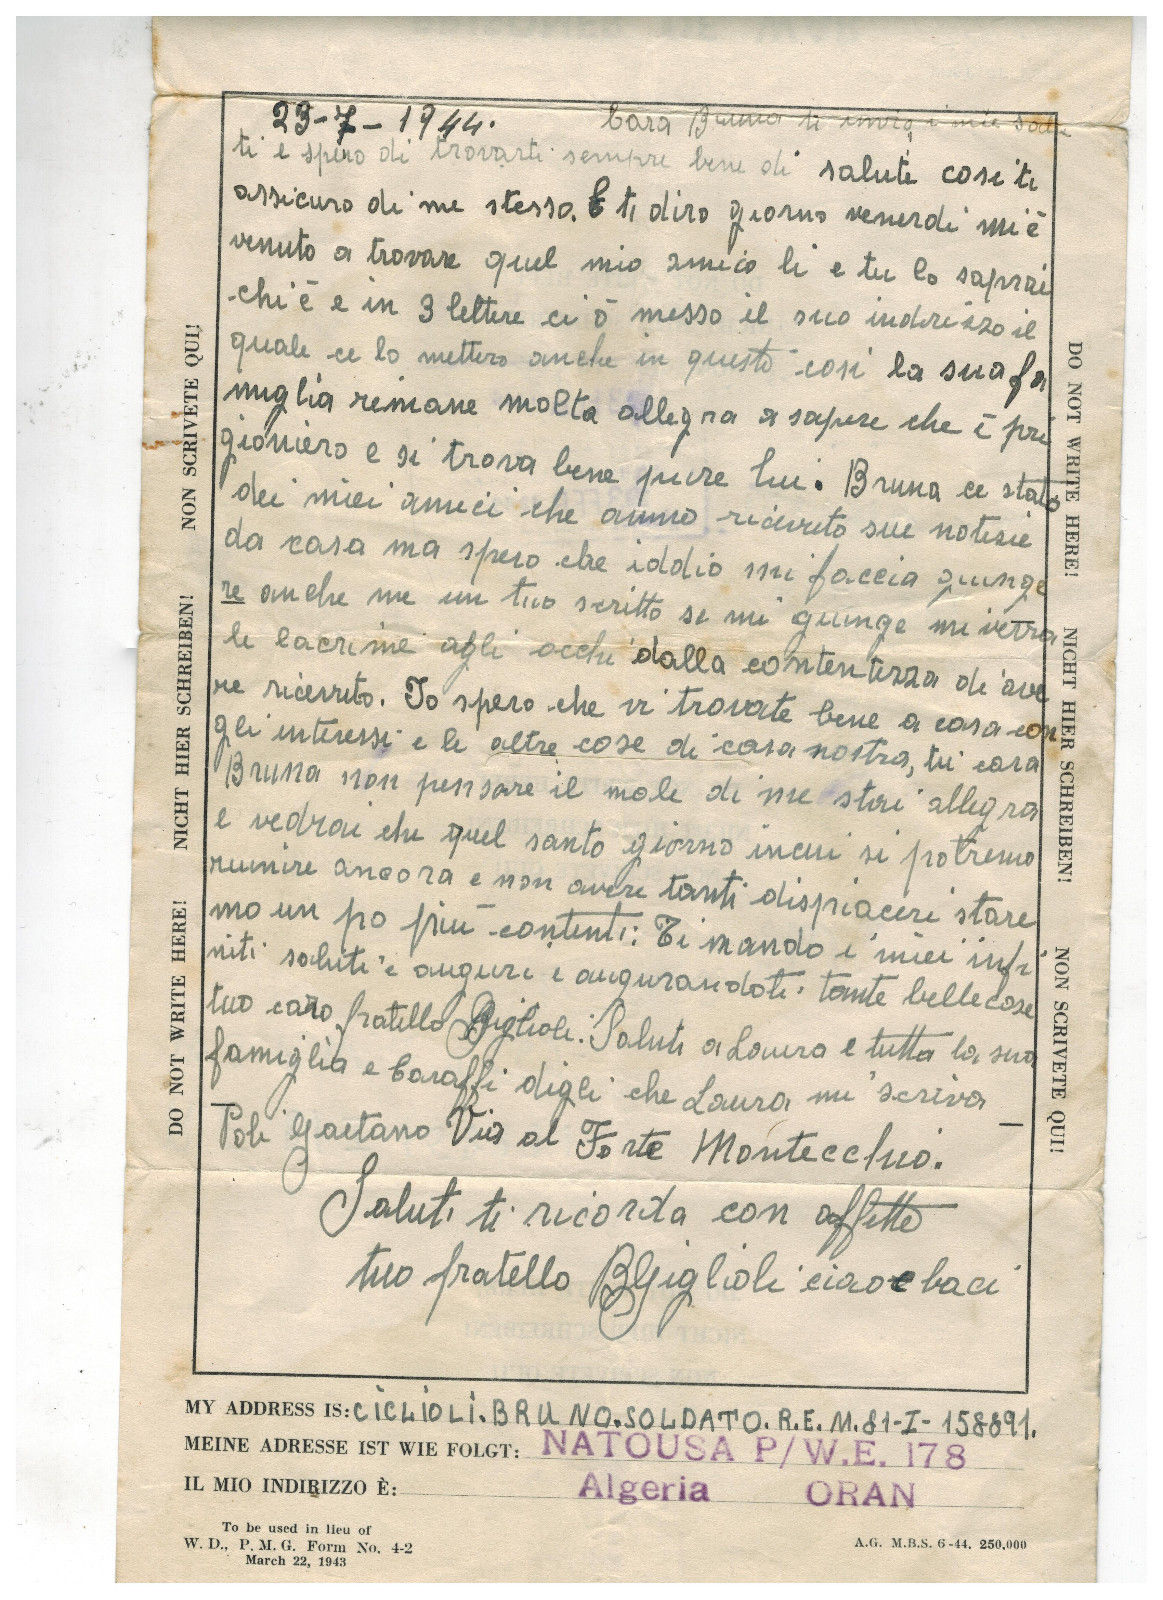 23-7-1944. Cara Bruna ti invio i mie salu
ti e spero di trovarti sempre bene di salute cosi ti
assicuro di me stesso. E ti diro giorno venerdi mi è
venuto a trovare quel mio amico li e tu lo saprai
chi è e in 3 lettere ci ò messo il suo indirizzo il
quale ce lo mettero anche in questo cosi la sua fa
miglia rimane molta allegra a sapere che è pri
gioniero e si trova bene pure lui. Bruna ce stato
dei miei amici che anno ricevuto sue notizie
da casa ma spero che iddio mi faccia giunge
re anche me un tuo scritto se mi giunge mi verra
le lacrime agli occhi dalla contentezza di ave
re ricevuto. Io spero che vi trovate bene a casa con
gli interessi e le altre cose di casa nostra, tu cara
Bruna non pensare il male di me stai allegra
e vedrai che quel santo giorno in cui si potremo
riunire ancora e non avere tanti dispiaceri stare
mo un po più contenti: Ti mando i miei infi
niti saluti e auguri e augurandoti tante belle cose
tuo caro fratello Giglioli. Saluti a Laura e tutta la sua
famiglia e Caraffi digli che Laura mi scriva —
Poli Gaetano Via al Forte Montecchio.
Saluti ti ricorda con affetto
tuo fratello BGiglioli ciao e baci
DO NOT WRITE HERE! NICHT HIER SCHREIBEN! NON SCRIVETE QUI!
DO NOT WRITE HERE! NICHT HIER SCHREIBEN! NON SCRIVETE QUI!
MY ADDRESS IS: GIGLIOLI. BRUNO. SOLDATO. R.E.M. 81-I-158691.
MEINE ADRESSE IST WIE FOLGT: NATOUSA P/W.E. 178
IL MIO INDIRIZZO È: Algeria ORAN
To be used in lieu of
W. D., P. M. G. Form No. 4-2
March 22, 1943
A.G. M.B.S. 6-44. 250,000